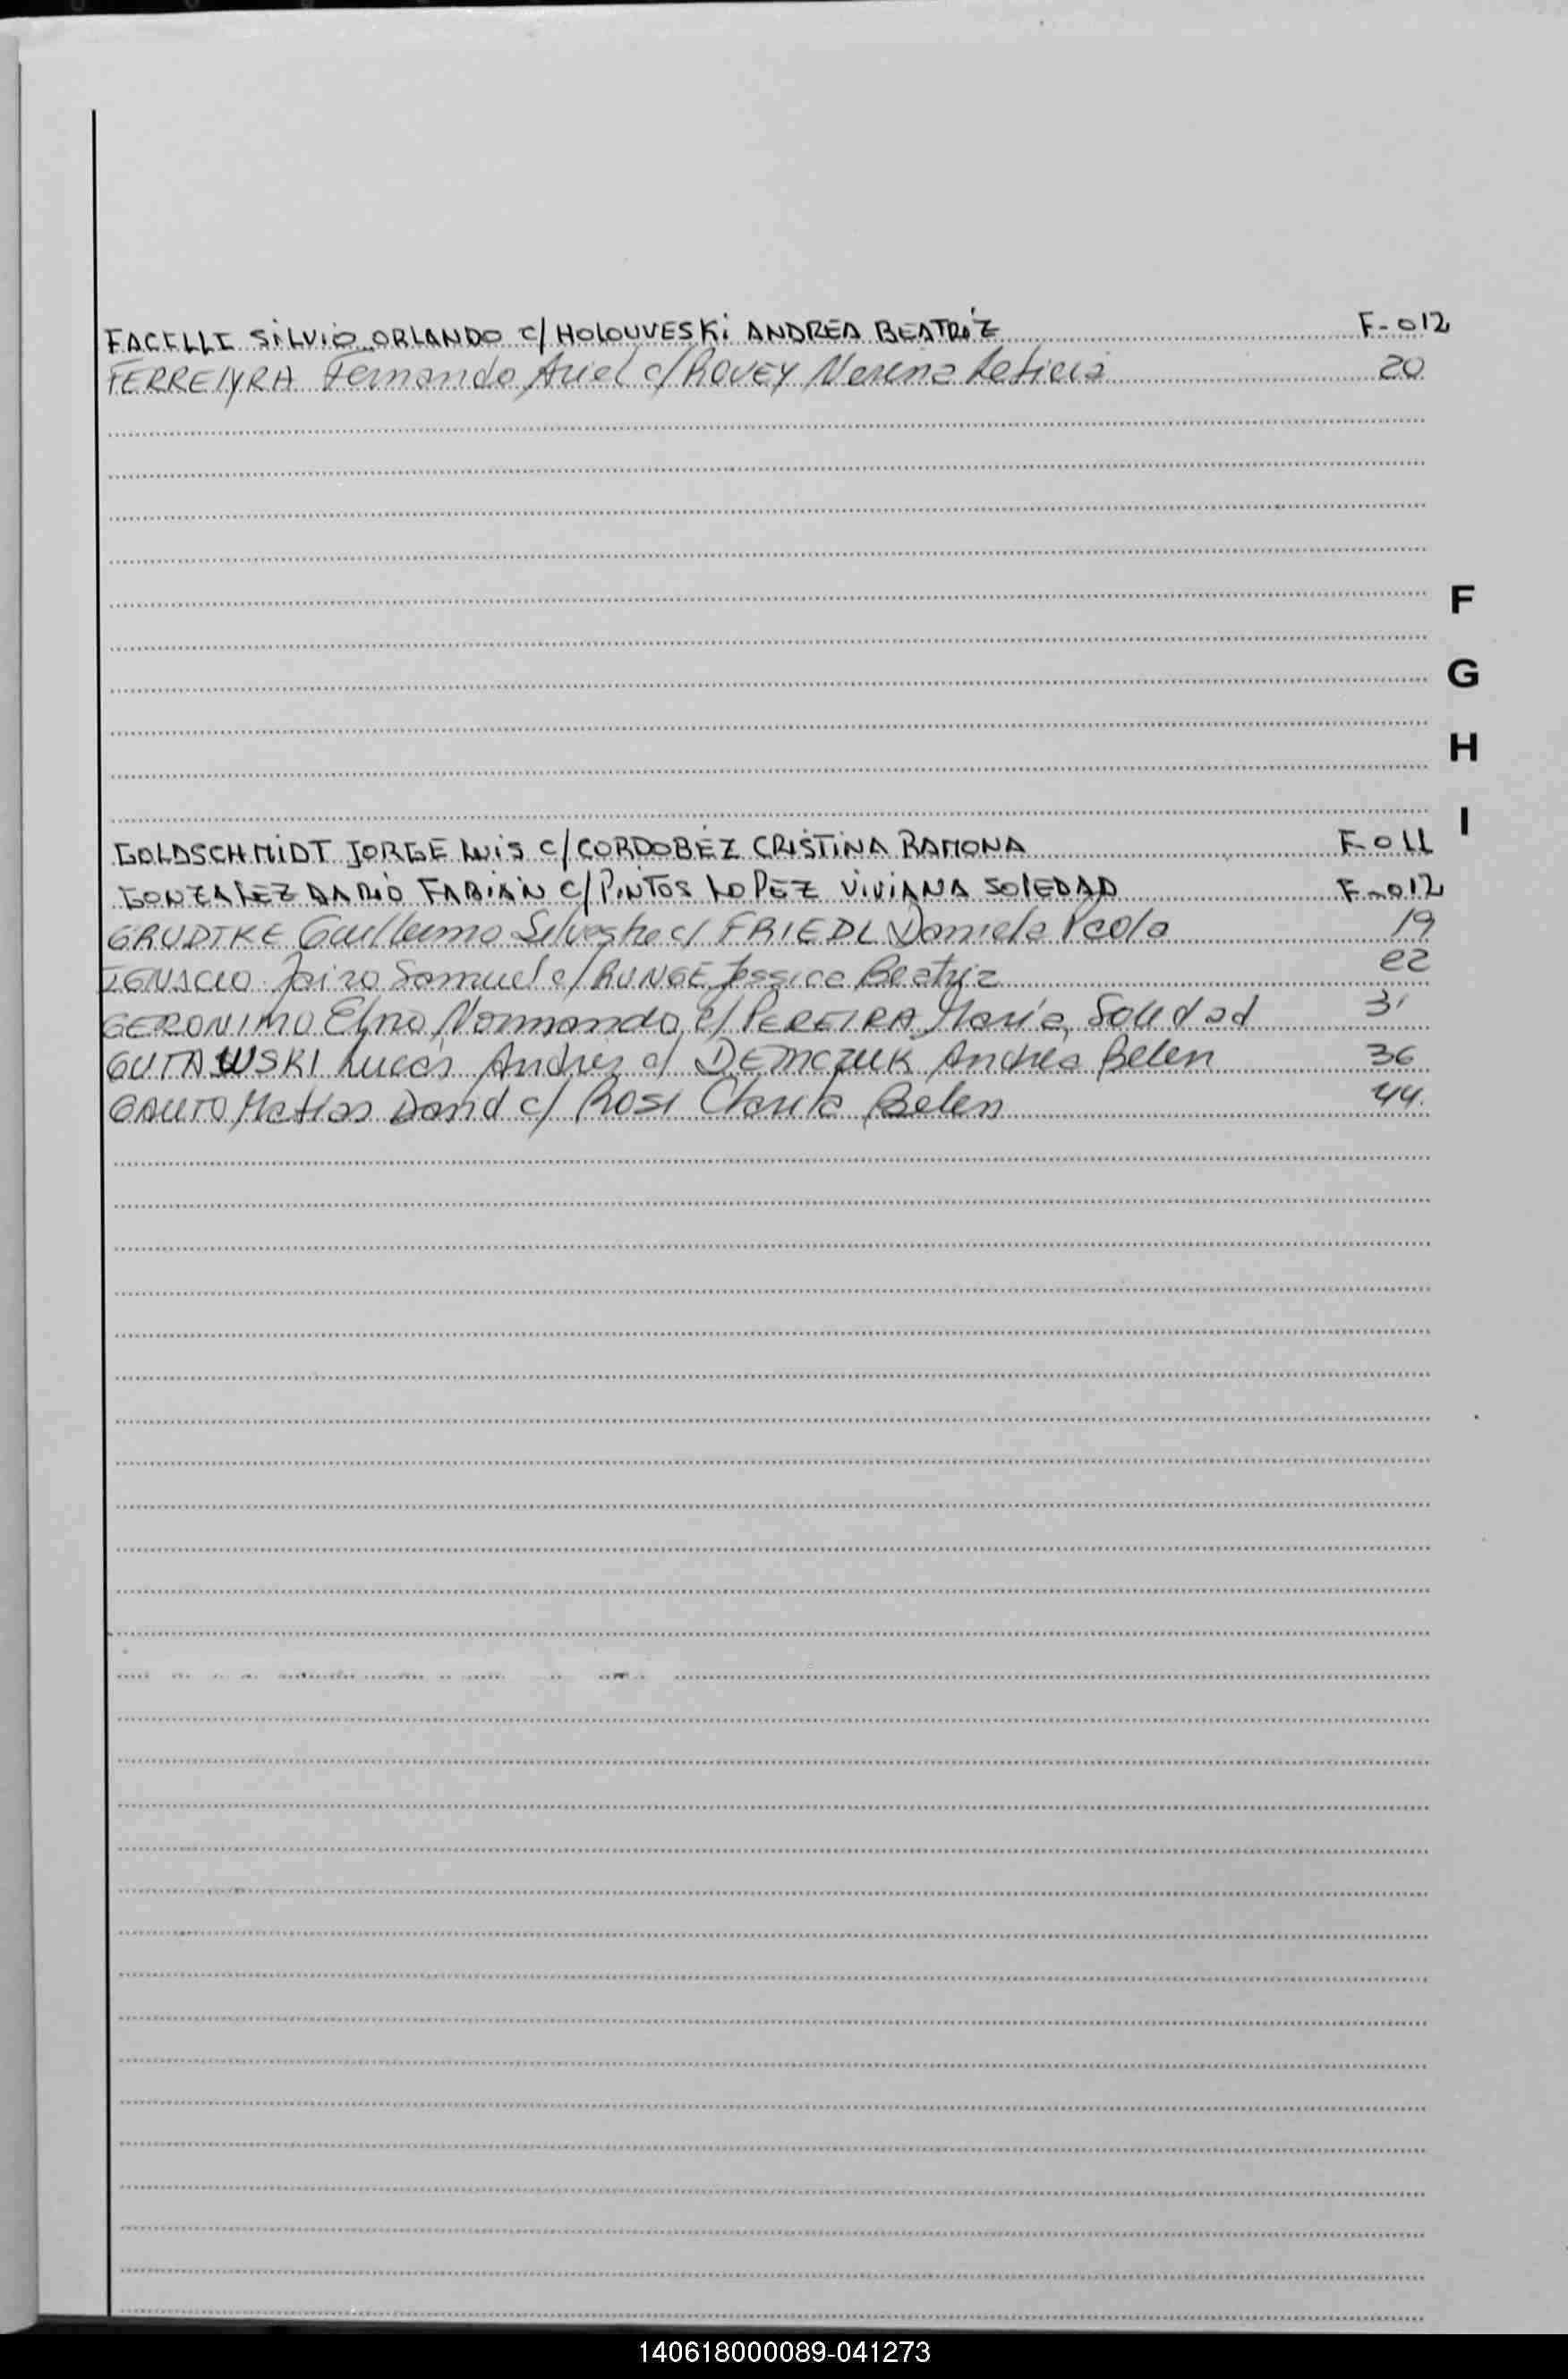 FACELLI SILVIO ORLANDO c/ HOLOUVESKI ANDREA BEATRÍZ F-012
FERREIYRA Fernando Ariel c/ ROVEY Nerina Leticia 20
F
G
H
I
GOLDSCHMIDT JORGE LUIS c/ CORDOBÉZ CRISTINA RAMONA F-011
GONZALEZ DARIO FABIÁN c/ PINTOS LOPEZ VIVIANA SOLEDAD F-012
GRUDTKE Guillermo Silvestre c/ FRIEDL Daniela Paola 19
IGNACIO Jairo Samuel c/ RUNGE Jessica Beatriz 22
GERONIMO Normando c/ PEREIRA María Soledad 31
GUTAWSKI Lucas Andres c/ DEMCZUK Andrea Belen 36
GAUTO Matias David c/ ROSI Belen 44
140618000089-041273